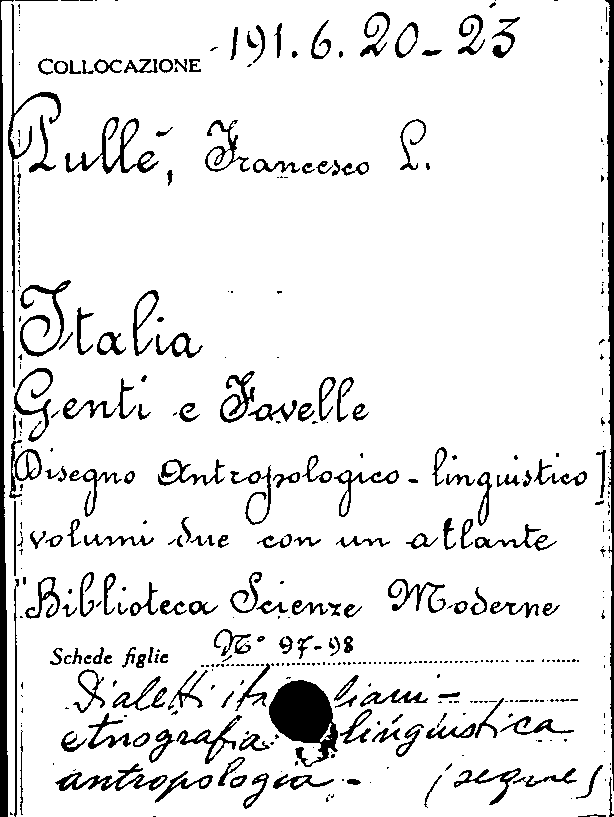 COLLOCAZIONE 191.6.20-23
Pullé, Francesco L.
Italia
Genti e Favelle
[Disegno Antropologico-linguistico]
volumi due con un atlante
"Biblioteca Scienze Moderne
Schede figlie N° 97-98
Dialetti italiani -
etnografia linguistica
antropologia - (segue)